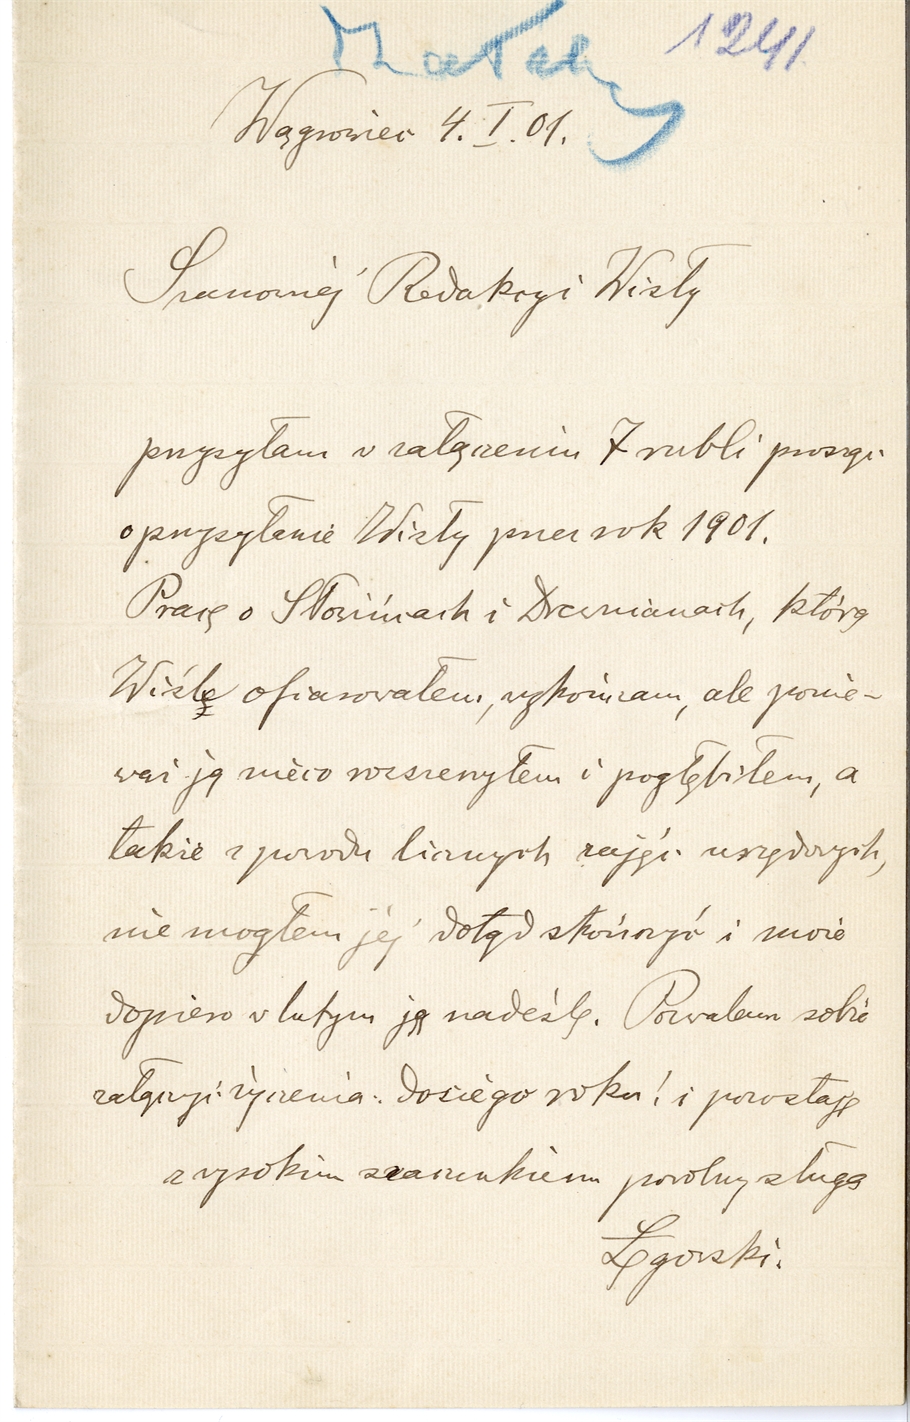 1241
Wągrowiec 4. I. 01.
Szanownéj Redakcyi Wisły
przysyłam w załączeniu 7 rubli prosząc
o przysyłanie Wisły przez rok 1901.
Pracę o Słowińcach i Drewnianach, którą
Wiślę ofiarowałem, wykończam, ale ponie-
waż ją nieco rozszerzyłem i pogłębiłem, a
także z powodu licznych zajęć urzędowych,
nie mogłem jéj dotąd skończyć i może
dopiero w lutym ją nadeślę. Pozwalam sobie
załączyć życzenia: Dosiego roku! i pozostaję
z wysokim szacunkiem powolny sługa
Łęgowski.